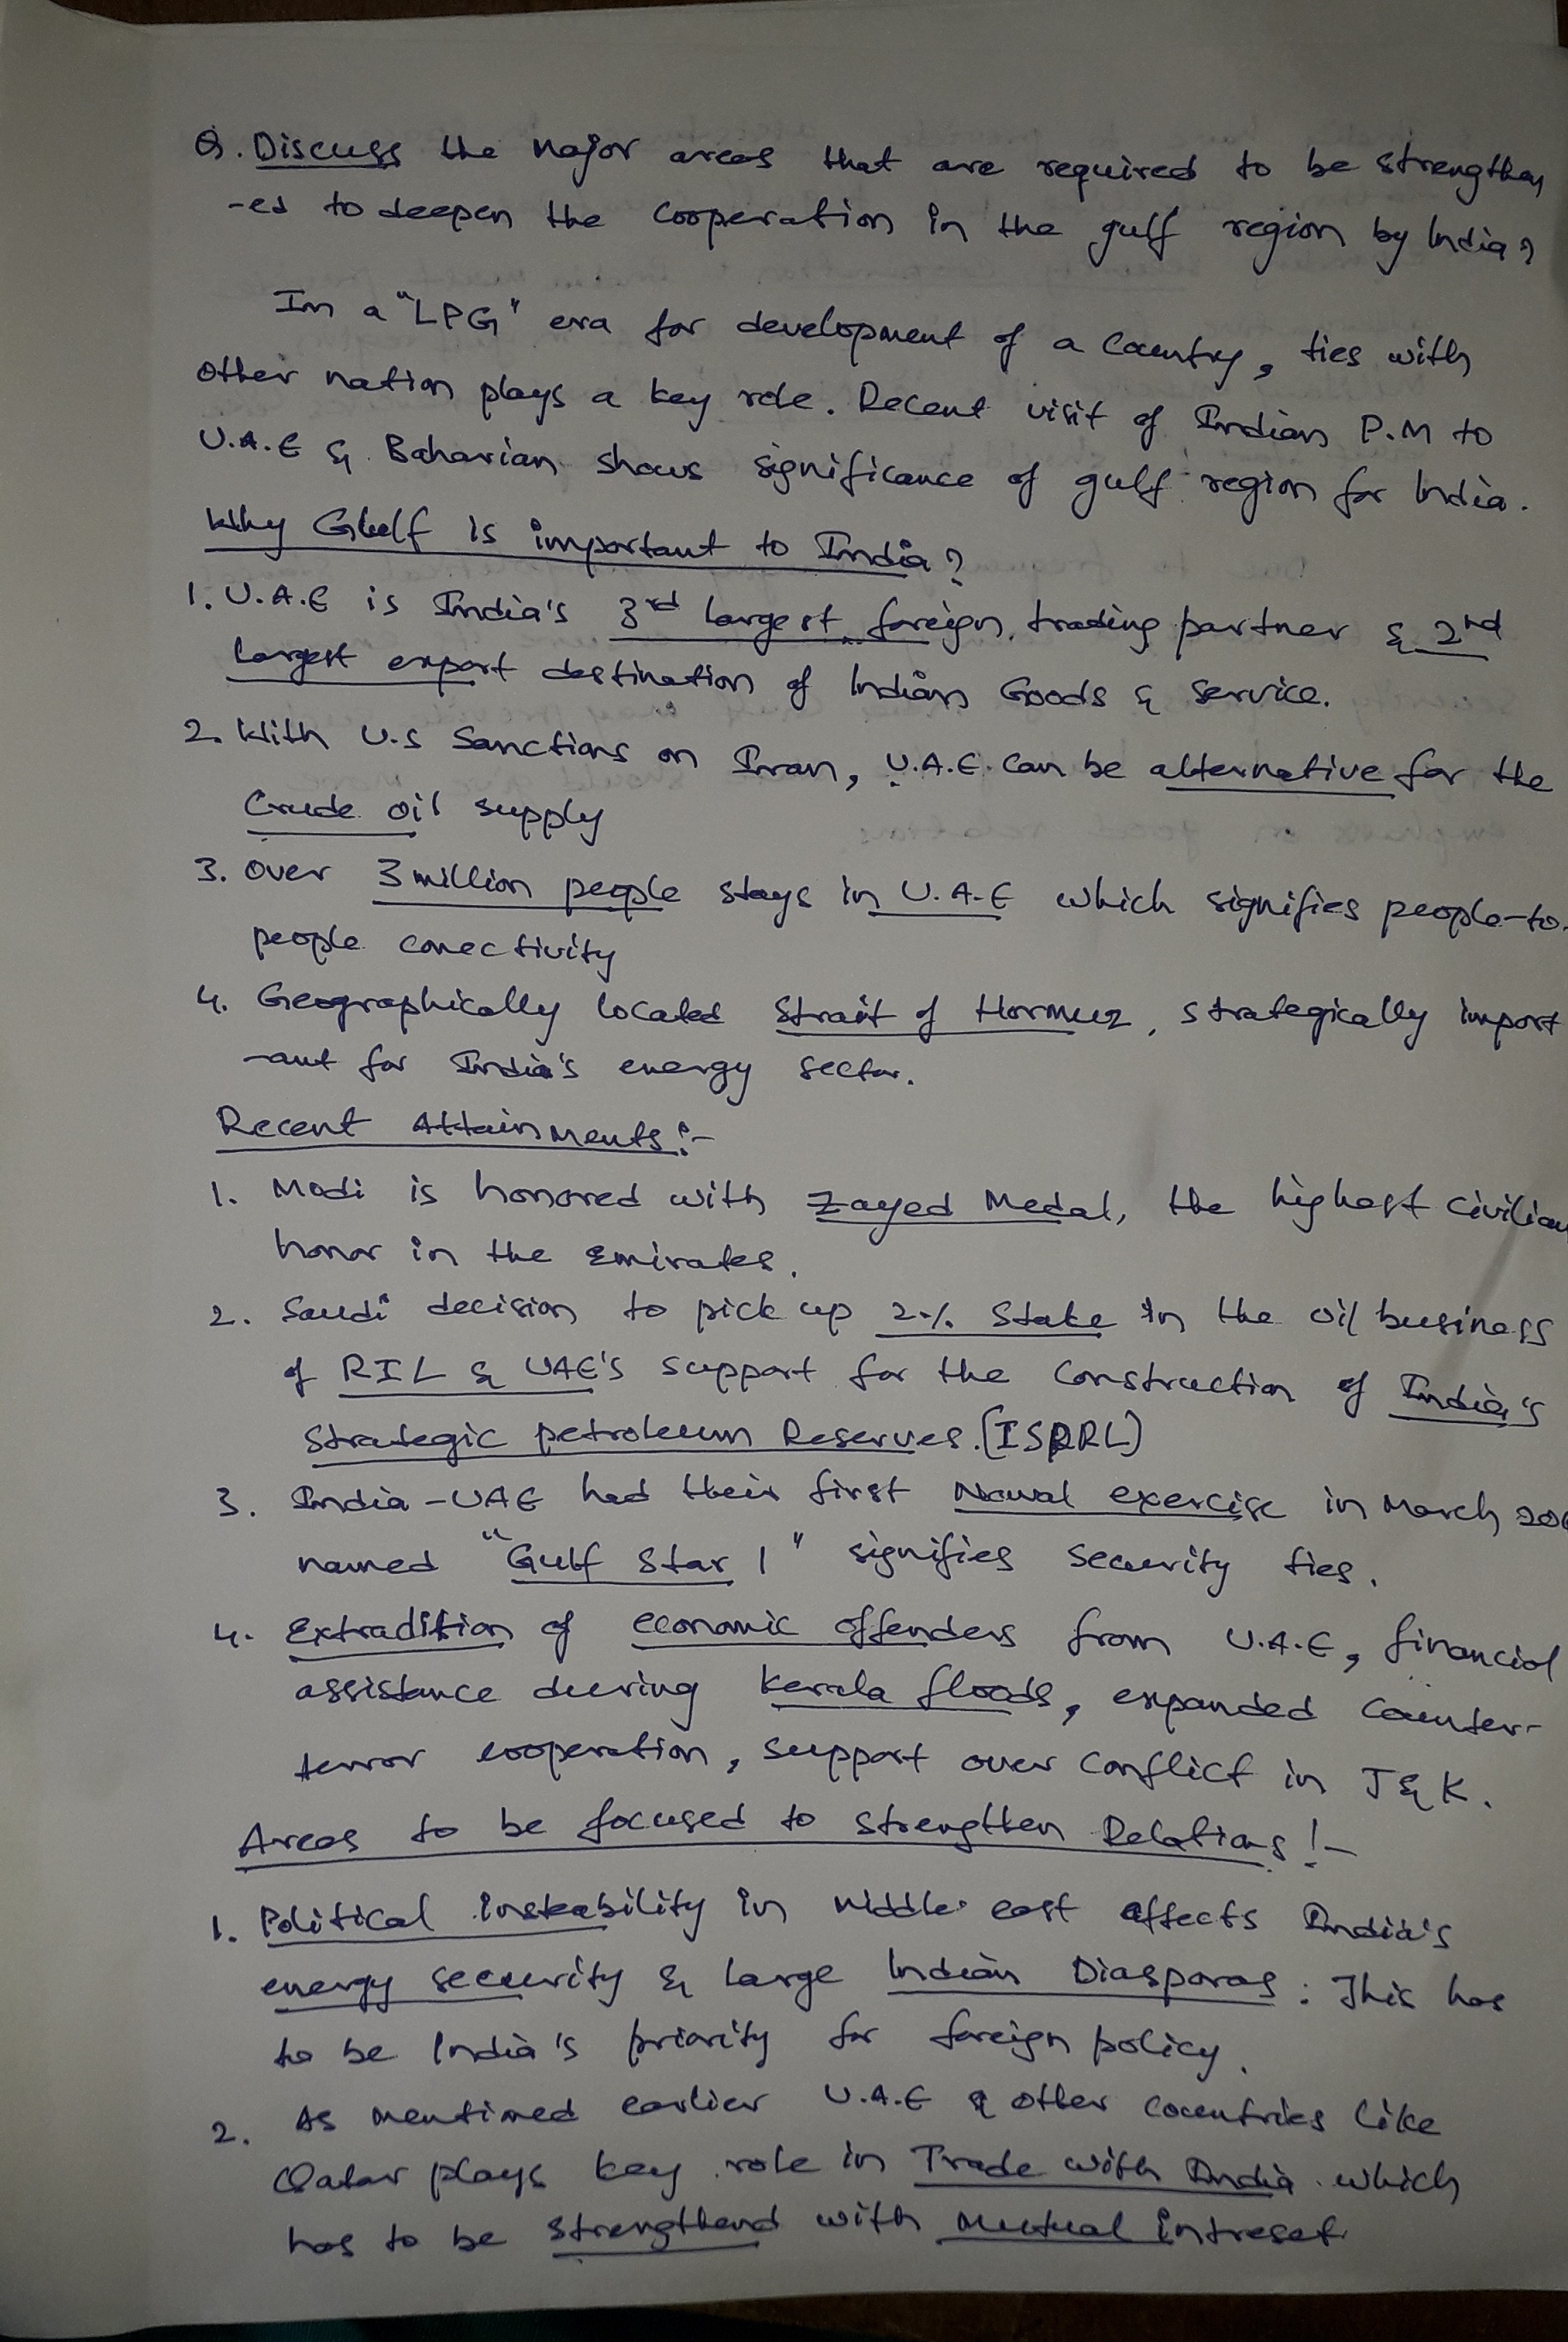 Q. Discuss the major areas that are required to be strengthen
-ed to deepen the cooperation in the gulf region by India?
In a "LPG" era for development of a Country, ties with
other nation plays a key role. Recent visit of Indian P.M to
U.A.E & Baharian shows significance of gulf region for India.
Why Gulf is important to India?
1. U.A.E is India's 3rd largest foreign trading partner & 2nd
largest export destination of Indian Goods & service.
2. With U.S Sanctions on Iran, U.A.E. can be alternative for the
Crude oil supply
3. Over 3 million people stays in U.A.E which signifies people-to-
people conectivity
4. Geographically located Strait of Hormuz, strategically import
-ant for India's energy sector.
Recent Attainments:-
1. Modi is honored with Zayed Medal, the highest civilian
honor in the Emirates.
2. Saudi decision to pick up 2% Stake in the oil business
of RIL & UAE's support for the construction of India's
Strategic petroleum Reserves. (ISPRL)
3. India-UAE had their first Naval exercise in March
named "Gulf Star 1" signifies security ties.
4. Extradition of economic offenders from U.A.E, financial
assistance during Kerala floods, expanded counter-
terror cooperation, support over conflict in J&K.
Areas to be focused to strengthen Relations!-
1. Political instability in middle east affects India's
energy security & large Indian Diasporas. This has
to be India's priority for foreign policy.
2. As mentioned earlier U.A.E & other countries like
Qatar plays key role in Trade with India which
has to be strengthend with mutual intreset